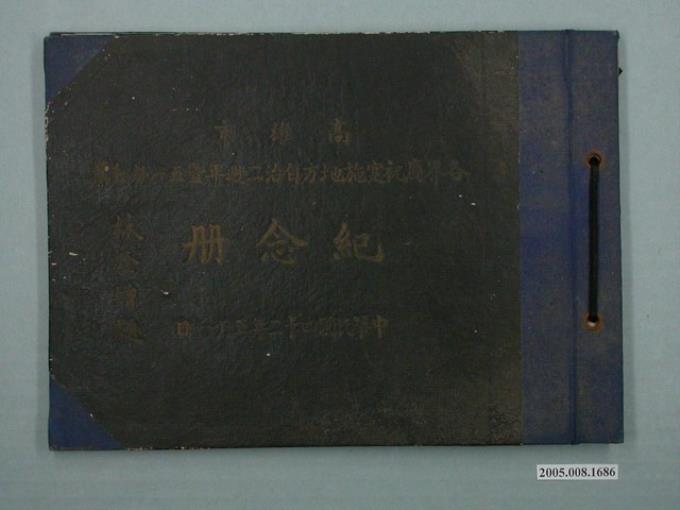 高雄市
各界慶祝實施地方自治二週年暨五一勞動節
紀念冊
中華民國四十二年五月一日
林金
2005.008.1686